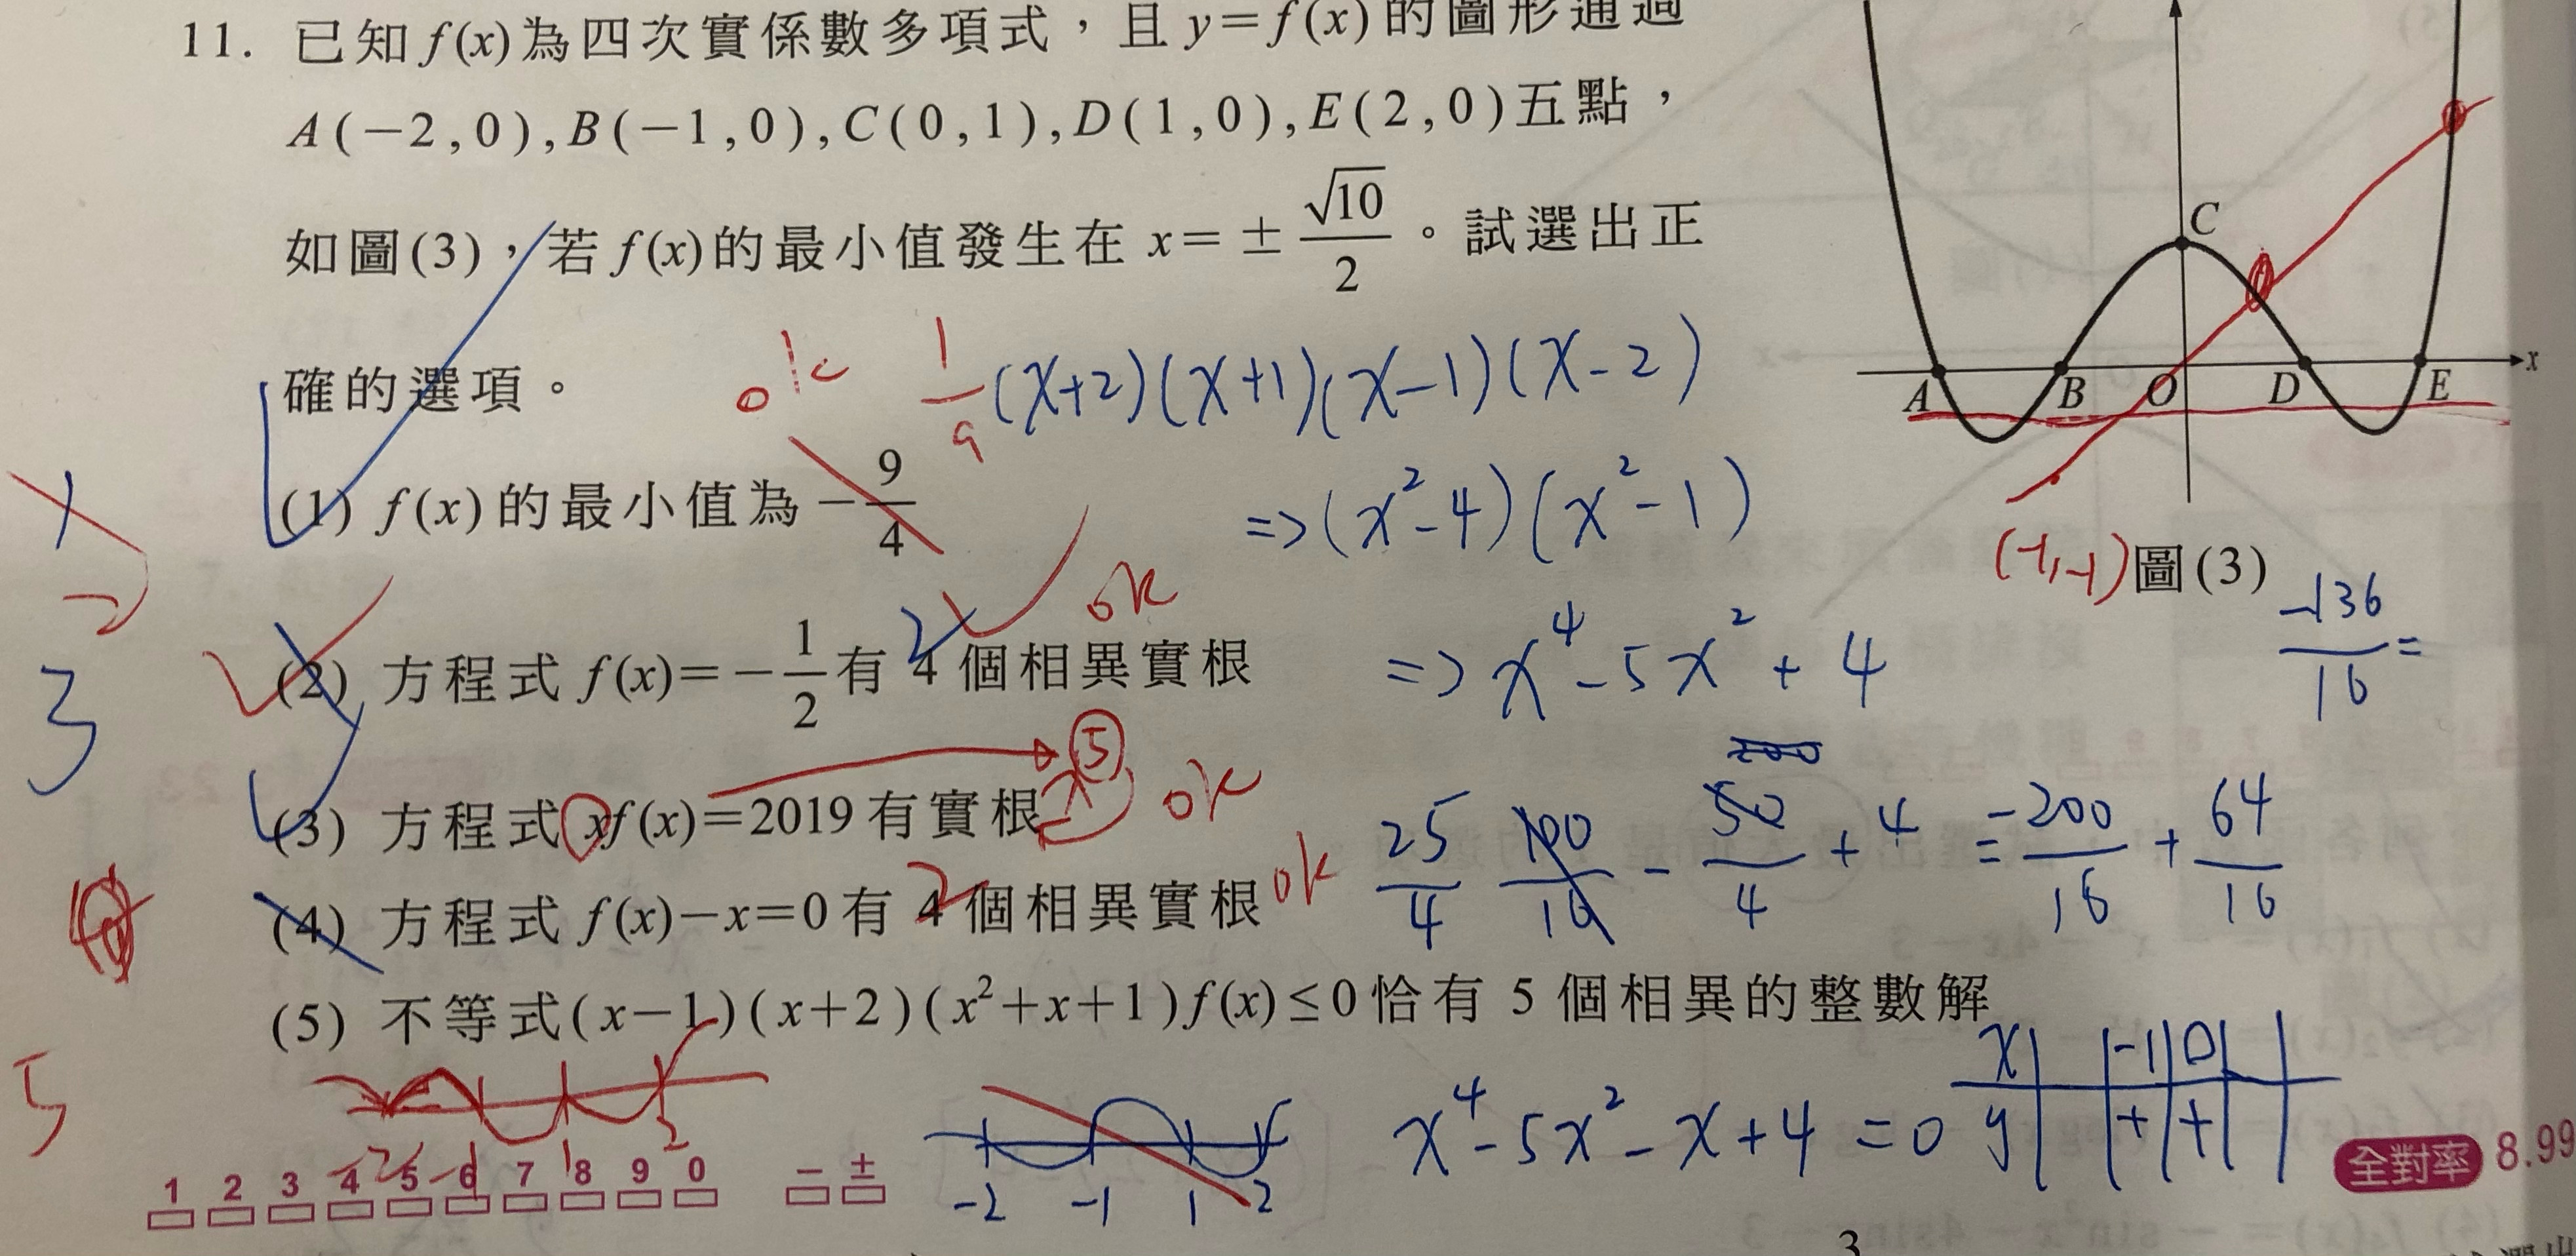 11. 已知 f(x) 為四次實係數多項式，且 y=f(x) 的圖形通過
A(−2,0), B(−1,0), C(0,1), D(1,0), E(2,0) 五點，
如圖(3)，若 f(x) 的最小值發生在 x=±√10/2。試選出正
確的選項。
ok 1/9 (x+2)(x+1)(x-1)(x-2)
(1) f(x) 的最小值為 −9/4
=> (x²-4)(x²-1)
ok
(2) 方程式 f(x)=−1/2 有 4 個相異實根
2
=> x⁴-5x²+4
3
5
(3) 方程式 xf(x)=2019 有實根
ok
25/4 100/16 - 50/4 + 4 = -200/16 + 64/16
(4) 方程式 f(x)−x=0 有 4 個相異實根
2
ok
(5) 不等式 (x−1)(x+2)(x²+x+1)f(x)≤0 恰有 5 個相異的整數解
5
-2 -1 1 2
-2 -1 1 2
x⁴-5x²-x+4=0
x -1 0
y + +
1 2 3 4 5 6 7 8 9 0 − ±
全對率 8.99
3
C
A B O D E x
(-1,-1)
圖(3)
-136/16 =